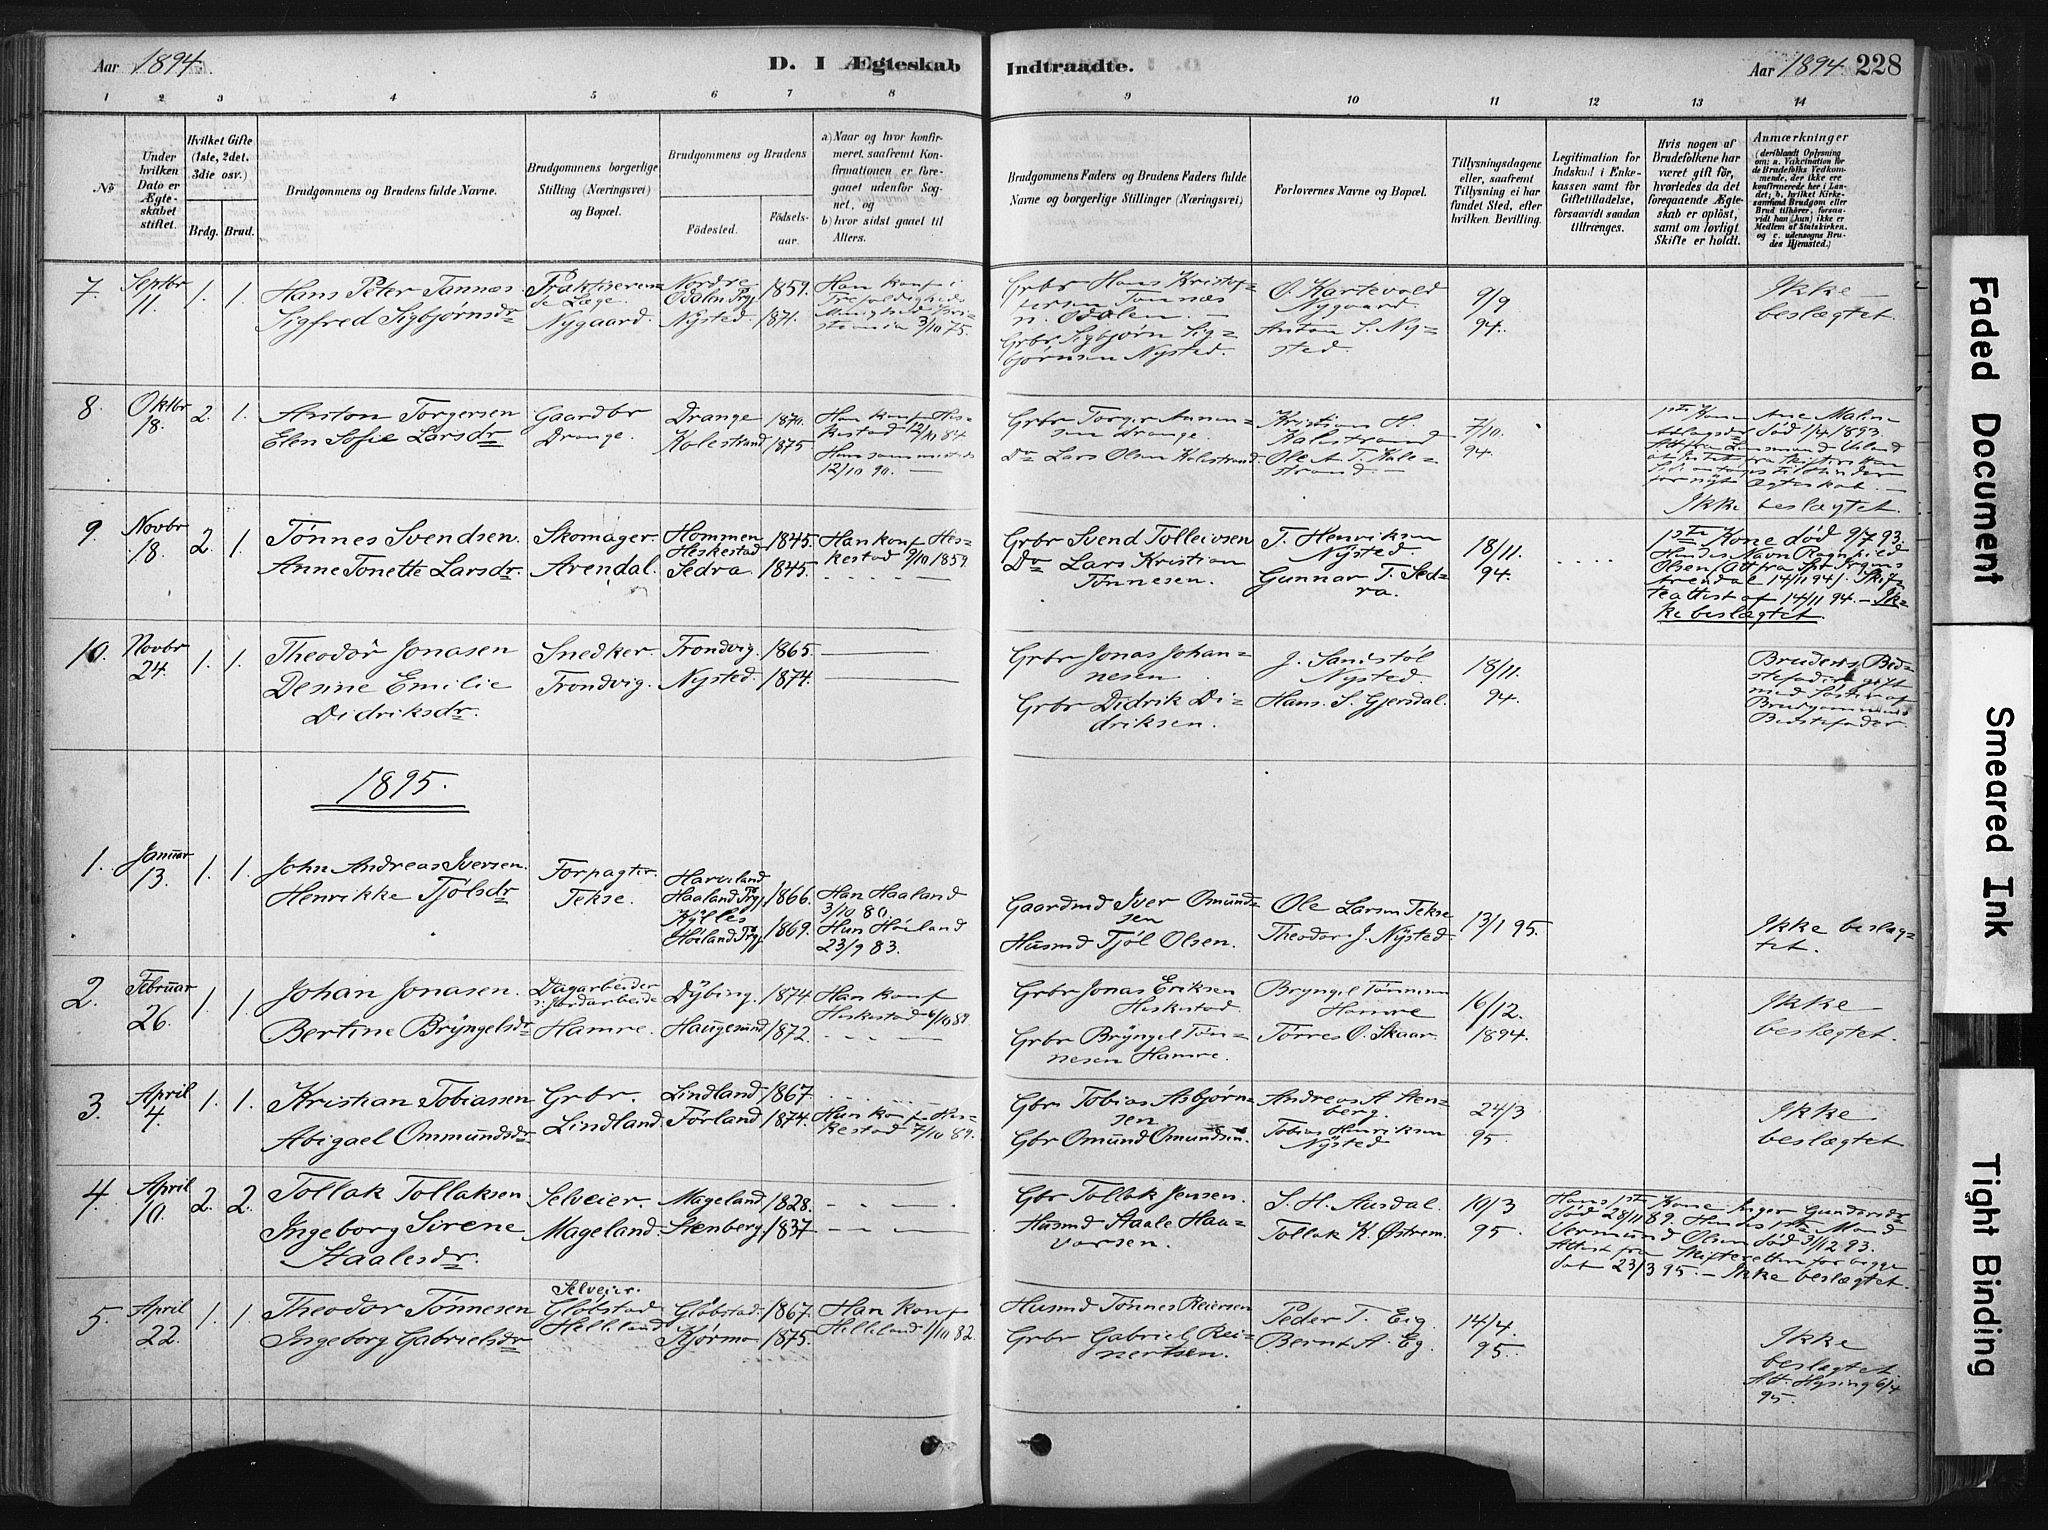 Aar 1894.
D. I Ægteskab
Indtraadte.
Aar 1894
228
1 2 3 4 5 6 7 8
9 10 11 12 13 14
No
Under hvilken Dato er Ægteskabet stiftet.
Hvilket Gifte (1ste, 2det, 3die osv.)
Brdg. Brud.
Brudgommens og Brudens fulde Navne.
Brudgommens borgerlige Stilling (Næringsvei) og Bopæl.
Brudgommens og Brudens
Fødested.
Fødselsaar.
a) Naar og hvor konfirmeret, saafremt Konfirmationen er foregaaet udenfor Sognet, og
b) hvor sidst gaaet til Alters.
Brudgommens Faders og Brudens Faders fulde Navne og borgerlige Stillinger (Næringsvei)
Forlovernes Navne og Bopæl.
Tillysningsdagene eller, saafremt Tillysning ei har fundet Sted, efter hvilken Bevilling.
Legitimation for Indskud i Enkekassen samt for Giftetilladelse, forsaavidt saadan tiltrænges.
Hvis nogen af Brudefolkene har været gift før, hvorledes da det foregaaende Ægteskab er opløst, samt om lovligt Skifte er holdt.
Anmærkninger
(deriblandt Oplysning om: a. Vakcination for de Brudefolks Vedkommende, der ikke ere konfirmerede her i Landet; b. hvilket Kirkesamfund Brudgom eller Brud tilhører, forsaavidt han (hun) ikke er Medlem af Statskirken, og c. udensogns Brudes Hjemsted.)
7. Septbr 11. 1. 1.
Hans Peter Tannæs
Sigfred Sigbjørnsdr
Praktiserende Læge.
Nygaard.
Nordre Odalen Prg. 1859.
Nysted. 1871.
Han konf i
Trefoldigheds
Menighed Kristiania 3/10 75.
Grbr Hans Kristoffersen Tonnæs
n. Odalen. —
Grbr Sigbjørn Sigbjørnsen Nysted.
O. Kartevold
Nygaard
Anton S. Nysted.
9/9
94.
Ikke
beslægtet.
8. Oktbr 18. 2. 1.
Anton Torgersen
Elen Sofie Larsdr
Gaardbr
Drange.
Drange 1870.
Kolestrand 1875
Han konf Heskestad 12/10 84.
12/10 90. —
Grbr Torger
Drange.
Do Lars Olsen Kolestrand.
Kristian H.
Kolestrand
Ole A. T. Kolestrand —
7/10
94.
1ste Kone Ane Malin
død 1/4 1893.
for nyt Ægteskab. —
Ikke beslægtet.
9. Novbr 18. 2. 1.
Tønnes Svendsen.
Anne Tonette Larsdr.
Skomager.
Arendal.
Hommen
Heskestad 1845.
Sedra 1845.
Han konf Heskestad 9/10 1859.
Grbr Svend Tolleivsen
Do Lars Kristian
Tønnesen.
T. Henriksen
Nysted.
Gunnar T. Sedra.
18/11.
94.
1ste Kone død 9/7 93.
Hendes Navn Ragnfrid
Olsen (Att fra
Arendal 14/11 94). Skifteattest af 14/11 94. — Ikke beslægtet.
10. Novbr 24. 1. 1.
Theodor Jonasen
Denne Emilie
Didriksdr.
Snedker.
Trondvig.
Trondvig. 1865.
Nysted. 1874.
Grbr Jonas Johannesen.
Grbr Didrik Didriksen.
J. Sandstøl
Nysted.
Hans. S. Gjersdal.
18/11.
94.
Brudens Bedstefader gift
med Søster af
Brudgommens
Bedstefader.
1895.
1. Januar 13. 1. 1.
John Andreas Iversen.
Henrikke Tjølsdr
Forpagter.
Tekse.
Harveland
Haaland Prg. 1866.
Kylles
Høiland Prg. 1869.
Han Haaland
3/10 80.
Hun Høiland
23/9 83.
Gaardmd Iver Omundsen
Husmd Tjøl Olsen.
Ole Larsen Tekse
Theodor J. Nysted.
13/1 95.
Ikke beslægtet.
2. Februar 26. 1. 1.
Johan Jonasen.
Bertine Bryngelsdr
Dagarbeider
Hamre.
Dybing. 1874
Haugesund 1872.
Han konf
Heskestad
Grbr Jonas Eriksen
Heskestad
Grbr Bryngel Tønnesen Hamre.
Bryngel Tønnesen
Hamre
Tørres O. Skaar.
16/12.
1894.
Ikke
beslægtet.
3. April 4. 1. 1.
Kristian Tobiassen
Abigael Ommundsdr
Grbr.
Lindland.
Lindland 1867.
Førland 1874.
Han konf Heskestad 7/10 89.
Gbr Tobias Asbjørnsen
Gbr Omund Omundsen.
Andreas A Stenberg.
Tobias Henriksen
Nysted
24/3
95.
Ikke
beslægtet.
4. April 10. 2. 2.
Tollak Tollaksen
Ingeborg Sirene
Staalesdr.
Selveier.
Mageland.
Mageland 1828.
Stenberg. 1837
Gbr Tollak Jensen.
Husmd Staale Haavorsen.
S. H. Ausdal.
Tollak K. Østrem.
10/3
95.
Hans 1ste Kone Inger Gundersdr
død 28/11 89. Hendes 1ste Mand
Vermund Olsen død 3/12 93.
Attest fra Skifteretten for begge
dat 23/3 95. — Ikke beslægtet.
5. April 22. 1. 1.
Theodor Tønnesen
Ingeborg Gabrielsdr
Selveier.
Gløbstad
Helleland
Gløbstad. 1867.
Kjørmo 1875.
Han konf
Helleland 1/10 82.
Husmd Tønnes Reiersen
Grbr Gabriel Reinertsen.
Peder T. Eig.
Bernt A. Eg.
14/4.
95.
Ikke
beslægtet
Att. Hysing 6/4
95.
Faded Document
Smeared Ink
Tight Binding